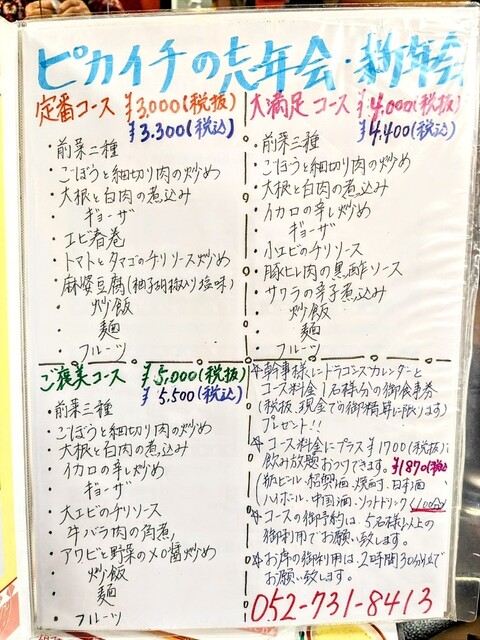 ピカイチの忘年会・新年会
定番コース ¥3,000(税抜)
¥3,300(税込)
・前菜三種
・ごぼうと細切り肉の炒め
・大根と白肉の煮込み
・ギョーザ
・エビ春巻
・トマトとタマゴのチリソース炒め
・麻婆豆腐(柚子胡椒入り塩味)
・炒飯
・麺
・フルーツ
大満足コース ¥4,000(税抜)
¥4,400(税込)
・前菜三種
・ごぼうと細切り肉の炒め
・大根と白肉の煮込み
・イカロの辛し炒め
・ギョーザ
・小エビのチリソース
・豚ヒレ肉の黒酢ソース
・サワラの辛子煮込み
・炒飯
・麺
・フルーツ
ご褒美コース ¥5,000(税抜)
¥5,500(税込)
・前菜三種
・ごぼうと細切り肉の炒め
・大根と白肉の煮込み
・イカロの辛し炒め
・ギョーザ
・大エビのチリソース
・牛バラ肉の角煮
・アワビと野菜のXO醤炒め
・炒飯
・麺
・フルーツ
幹事様にドラゴンズカレンダーと
コース料金1名様分の御食事券
(税抜、現金での御精算に限ります)
プレゼント!!
コース料金にプラス¥1700(税抜)で
飲み放題おつけできます。¥1870(税込)
(瓶ビール・紹興酒・焼酎・日本酒
(ハイボール・中国酒・ソフトドリンク(100分)
コースの御予約は、5名様以上の
御利用でお願い致します。
お席の御利用は、2時間30分までで
お願い致します。
052-731-8413